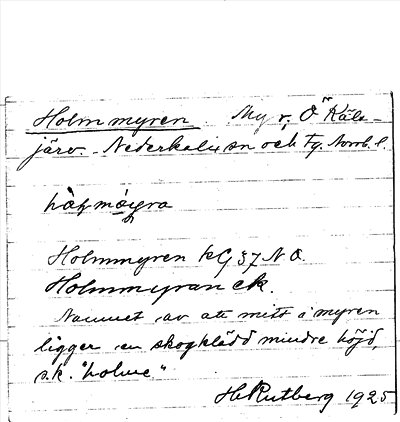 Holmmyren. Myr, Ö Räk-
järv. Nederkalix sn och tg. Norrb. l.
Holmmyren kG 37 N O.
Holmmyran ek.
Namnet av att mitt i myren
ligger en skogklädd mindre höjd,
s.k. "holme"
H Rutberg 1925